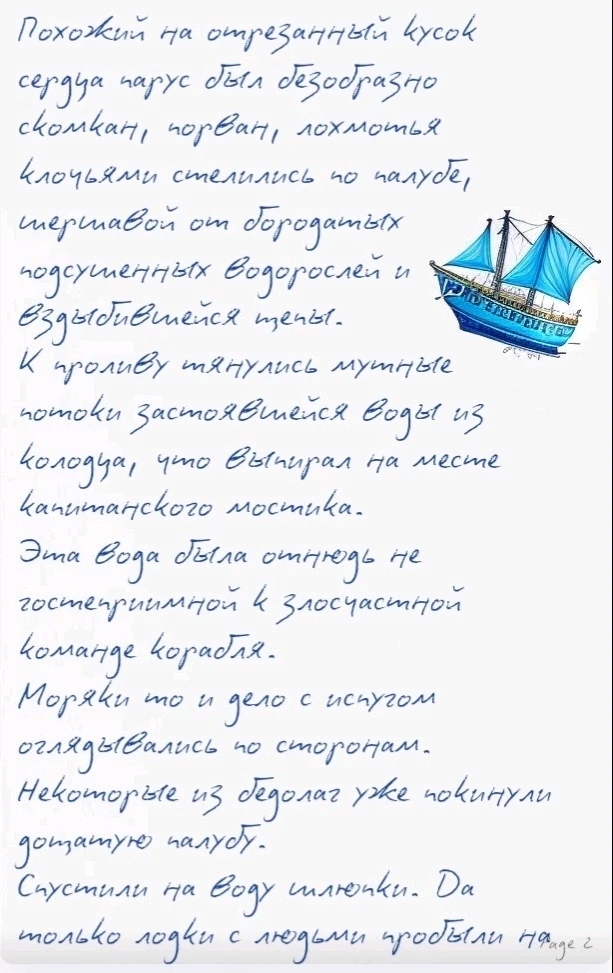 Похожий на отрезанный кусок
сердца парус был безобразно
скомкан, порван, лохмотья
клочьями стелились по палубе,
шершавой от бородатых
подсушенных водорослей и
вздыбившейся щепы.
К проливу тянулись мутные
потоки застоявшейся воды из
колодца, что выпирал на месте
капитанского мостика.
Эта вода была отнюдь не
гостеприимной к злосчастной
команде корабля.
Моряки то и дело с испугом
оглядывались по сторонам.
Некоторые из бедолаг уже покинули
дощатую палубу.
Спустили на воду шлюпки. Да
только лодки с людьми пробыли на
Page 2